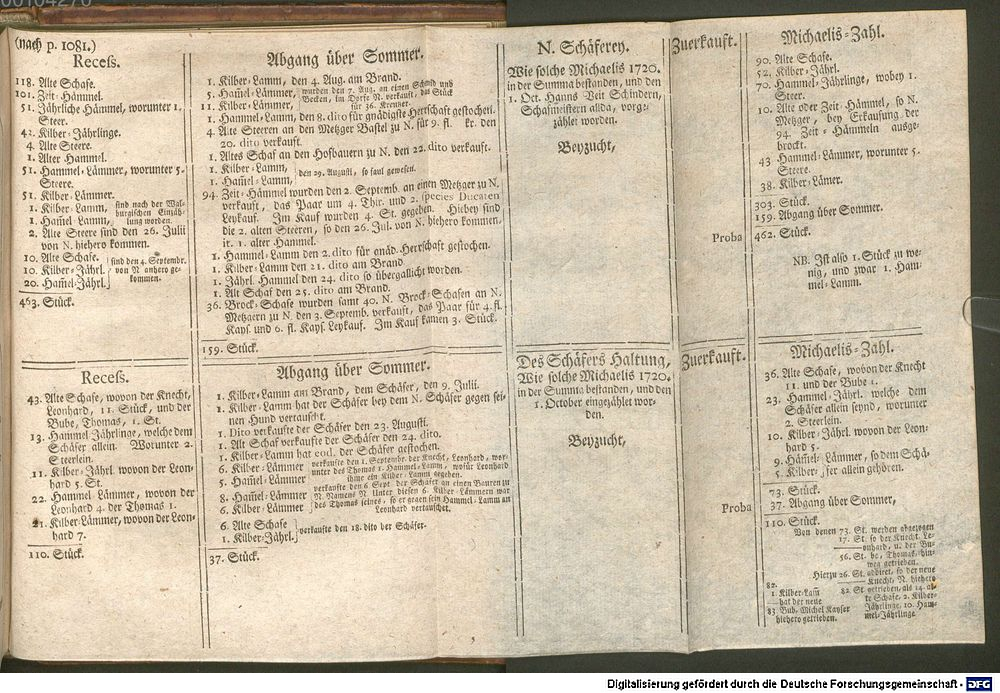 (nach p. 1081.)
Recess.
118. Alte Schafe.
101. Zeit-Hämmel.
51. Jährliche Hämmel, worunter 1.
Steer.
42. Kilber-Jährlinge.
4. Alte Steere.
1. Alter Hammel.
51. Hammel-Lämmer, worunter 5.
Steere.
51. Kilber-Lämmer.
1. Kilber-Lamm,
1. Ham̃el-Lamm,
sind nach der Wal-
burgischen Einzäh-
lung worden.
2. Alte Steere sind den 26. Julii
von N. hiehero kommen.
10. Alte Schafe.
10. Kilber-Jährl.
20. Ham̃el-Jährl.
sind den 4. Septembr.
von N. anhero ge-
kommen.
463. Stück.
Abgang über Sommer.
1. Kilber-Lamm, den 4. Aug. am Brand.
5. Ham̃el-Lämmer,
11. Kilber-Lämmer,
wurden den 7. Aug. an einen Schmid und
Becken, im Dorfe N. verkauft, das Stück
für 36. Kreutzer.
1. Hammel-Lamm, den 8. dito für gnädigste Herrschaft gestochen.
4. Alte Steeren an den Metzger Bastel zu N. für 9. fl. kr. den
20. dito verkauft.
1. Altes Schaf an den Hofbauern zu N. den 22. dito verkauft.
1. Kilber-Lamm,
1. Ham̃el-Lamm,
den 29. Augusti, so faul gewesen.
94. Zeit-Hämmel wurden den 2. Septemb. an einen Metzger zu N.
verkauft, das Paar um 4. Thlr. und 2. species Ducaten
Leykauf. Im Kauf wurden 4. St. gegeben. Hiebey sind
die 2. alten Steeren, so den 26. Jul. von N. hiehero kommen,
it. 1. alter Hammel.
1. Hammel-Lamm den 2. dito für gnäd. Herrschaft gestochen.
1. Kilber-Lamm den 21. dito am Brand.
1. Jährl. Hammel den 24. dito so übergallicht worden.
1. Alt Schaf den 25. dito am Brand.
36. Brock-Schafe wurden samt 40. N. Brock-Schafen an N.
Metzgern zu N. den 3. Septemb. verkauft, das Paar für 4. fl.
Kays. und 6. fl. Kays. Leykauf. Im Kauf kamen 3. Stück.
159. Stück.
N. Schäferey.
Wie solche Michaelis 1720.
in der Summa bestanden, und den
1. Oct. Hanns Veit Schindern,
Schafmeistern allda, vorge-
zählet worden.
Beyzucht,
Zuerkauft.
Proba
Michaelis-Zahl.
90. Alte Schafe.
52. Kilber-Jährl.
70. Hammel-Jährlinge, wobey 1.
Steer.
10. Alte oder Zeit-Hämmel, so N.
Metzger, bey Erkaufung der
94. Zeit-Hämmeln ausge-
brockt.
43 Hammel-Lämmer, worunter 5.
Steere.
38. Kilber-Läm̃er.
303. Stück.
159. Abgang über Sommer.
462. Stück.
NB. Ist also 1. Stück zu we-
nig, und zwar 1. Ham-
mel-Lamm.
Recess.
43. Alte Schafe, wovon der Knecht,
Leonhard, 11. Stück, und der
Bube, Thomas, 1. St.
13. Hammel-Jährlinge, welche dem
Schäfer allein. Worunter 2.
Steerlein.
11. Kilber-Jährl. wovon der Leon-
hard 5. St.
22. Hammel-Lämmer, wovon der
Leonhard 4. der Thomas 1.
21. Kilber-Lämmer, wovon der Leon-
hard 7.
110. Stück.
Abgang über Sommer.
1. Kilber-Lamm am Brand, dem Schäfer, den 9. Julii.
1. Kilber-Lamm hat der Schäfer bey dem N. Schäfer gegen sei-
nen Hund vertauscht.
1. Dito verkaufte der Schäfer den 23. Augusti.
1. Alt Schaf verkaufte der Schäfer den 24. dito.
1. Kilber-Lamm hat eod. der Schäfer gestochen.
6. Kilber-Lämmer
5. Ham̃el-Lämmer
verkaufte den 1. Septembr. der Knecht, Leonhard, wor-
unter des Thomas 1. Hammel-Lamm, wofür Leonhard
ihme ein Kilber-Lamm gegeben.
8. Ham̃el-Lämmer
6. Kilber-Lämmer
verkaufte den 6. Sept. der Schäfer an einen Bauren zu
N. Namens N. Unter diesen 6. Kilber-Lämmern war
des Thomas seines, so er gegen sein Hammel-Lamm an
Leonhard vertauschet.
6. Alte Schafe
1. Kilber-Jährl.
verkaufte den 18. dito der Schäfer.
37. Stück.
Des Schäfers Haltung,
Wie solche Michaelis 1720.
in der Summa bestanden, und den
1. October eingezählet wor-
den.
Beyzucht,
Zuerkauft.
Proba
Michaelis-Zahl.
36. Alte Schafe, wovon der Knecht
11. und der Bube 1.
23. Hammel-Jährl. welche dem
Schäfer allein seynd, worunter
2. Steerlein.
10. Kilber-Jährl. wovon der Leon-
hard 5.
9. Ham̃el-Lämmer, so dem Schä-
5. Kilber- fer allein gehören.
73. Stück.
37. Abgang über Sommer,
110. Stück.
Von denen 73. St. werden abgezogen
17. St. so der Knecht, Le-
onhard, u. der Bu-
56. St. be, Thomas, hin-
weg getrieben.
Hierzu 26. St. addiret, so der neue
Knecht, N. hiehero
82. St. getrieben, als 14. al-
te Schafe, 2. Kilber-
Jährlinge, 10. Ham-
mel-Jährlinge.
82.
1. Kilber-Lam̃
hat der neue
83. Bub, Michel Kayser
hiehero getrieben.
Digitalisierung gefördert durch die Deutsche Forschungsgemeinschaft - DFG